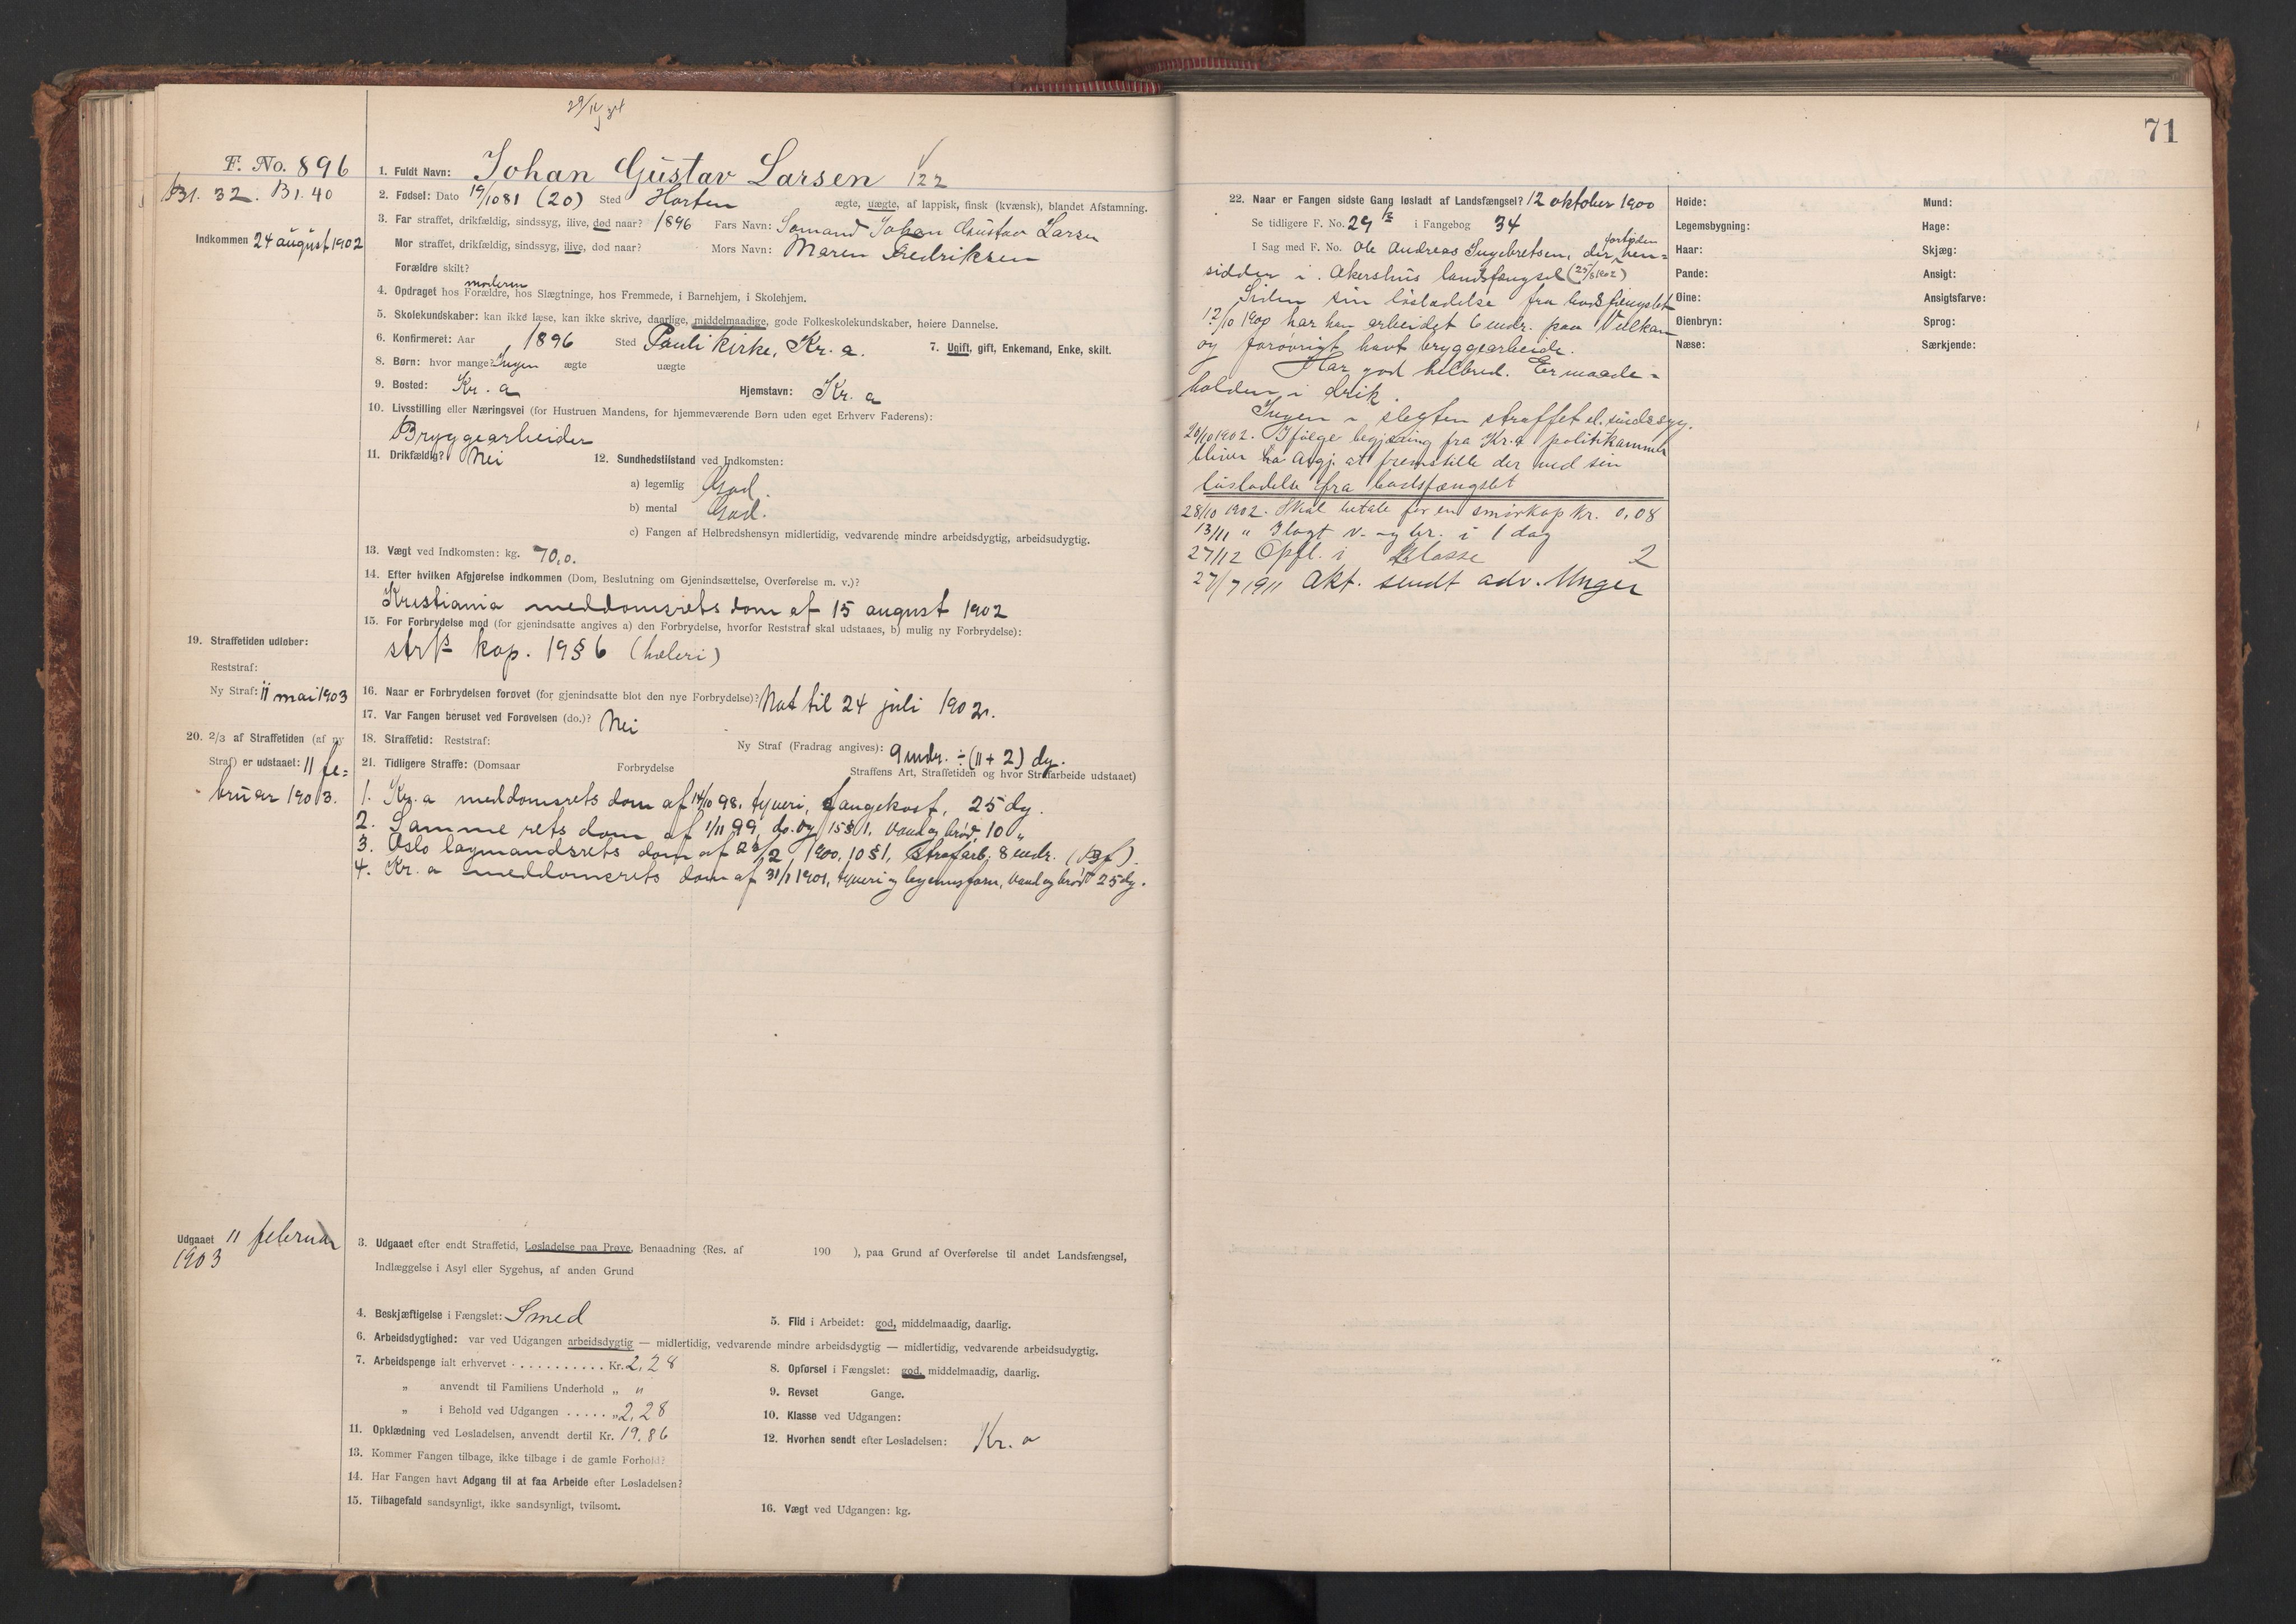 71
F. No. 896
B1. 32. B1. 40
Indkommen 24 august 1902
1. Fuldt Navn: Johan Gustav Larsen 122
2. Fødsel: Dato 19/10 81 (20) Sted Horten ægte, uægte, af lappisk, finsk (kvænsk), blandet Afstamning.
3. Far straffet, drikfældig, sindssyg, ilive, død naar? 1896 Fars Navn: Sømand Johan Gustav Larsen
Mor straffet, drikfældig, sindssyg, ilive, død naar? Mors Navn: Maren Fredriksen
Forældre skilt?
moderen
4. Opdraget hos Forældre, hos Slægtninge, hos Fremmede, i Barnehjem, i Skolehjem.
5. Skolekundskaber: kan ikke læse, kan ikke skrive, daarlige, middelmaadige, gode Folkeskolekundskaber, høiere Dannelse.
6. Konfirmeret: Aar 1896 Sted Pauli kirke, Kr. a. 7. Ugift, gift, Enkemand, Enke, skilt.
8. Børn: hvor mange? Ingen ægte uægte
9. Bosted: Kr. a Hjemstavn: Kr. a
10. Livsstilling eller Næringsvei (for Hustruen Mandens, for hjemmeværende Børn uden eget Erhverv Faderens):
Bryggearbeider
11. Drikfældig? Nei 12. Sundhedstilstand ved Indkomsten:
a) legemlig God.
b) mental God.
c) Fangen af Helbredshensyn midlertidig, vedvarende mindre arbeidsdygtig, arbeidsudygtig.
13. Vægt ved Indkomsten: kg. 70,0.
14. Efter hvilken Afgjørelse indkommen (Dom, Beslutning om Gjenindsættelse, Overførelse m. v.)?
Kristiania meddomsrets dom af 15 august 1902
15. For Forbrydelse mod (for gjenindsatte angives a) den Forbrydelse, hvorfor Reststraf skal udstaaes, b) mulig ny Forbrydelse):
kap. 19 § 6 (hæleri)
19. Straffetiden udløber:
Reststraf:
Ny Straf: 11 mai 1903
16. Naar er Forbrydelsen forøvet (for gjenindsatte blot den nye Forbrydelse)? Nat til 24 juli 1902.
17. Var Fangen beruset ved Forøvelsen (do.)? Nei
20. 2/3 af Straffetiden (af ny
Straf) er udstaaet: 11 fe=
bruar 1903.
18. Straffetid: Reststraf: Ny Straf (Fradrag angives): 9 mdr. ÷ (11 + 2) dg.
21. Tidligere Straffe: (Domsaar Forbrydelse Straffens Art, Straffetiden og hvor Strafarbeide udstaaet)
1. Kr. a meddomsrets dom af 14/10 98, tyveri, fangekost, 25 dg.
2. Samme rets dom af 1/11 99, do. og 15 § 1, vand og brød, 10 "
3. Oslo lagmandsrets dom af 1900, 10 § 1, Strafarb. 8 mdr. (Bf).
4. Kr. a meddomsrets dom af 31/1 1901, tyveri og vand og brød 25 dg.
Udgaaet 11 februar
1903
3. Udgaaet efter endt Straffetid, Løsladelse paa Prøve, Benaadning (Res. af 190 ), paa Grund af Overførelse til andet Landsfængsel,
Indlæggelse i Asyl eller Sygehus, af anden Grund
4. Beskjæftigelse i Fængslet: Smed 5. Flid i Arbeidet: god, middelmaadig, daarlig.
6. Arbeidsdygtighed: var ved Udgangen arbeidsdygtig — midlertidig, vedvarende mindre arbeidsdygtig — midlertidig, vedvarende arbeidsudygtig.
7. Arbeidspenge ialt erhvervet . . . . . . . . . . . Kr. 2,28 8. Opførsel i Fængslet: god, middelmaadig, daarlig.
" anvendt til Familiens Underhold " " 9. Revset Gange.
" i Behold ved Udgangen . . . . . " 2,28 10. Klasse ved Udgangen:
11. Opklædning ved Løsladelsen, anvendt dertil Kr. 19,86 12. Hvorhen sendt efter Løsladelsen: Kr. a
13. Kommer Fangen tilbage, ikke tilbage i de gamle Forhold?
14. Har Fangen havt Adgang til at faa Arbeide efter Løsladelsen?
15. Tilbagefald sandsynligt, ikke sandsynligt, tvilsomt. 16. Vægt ved Udgangen: kg.
22. Naar er Fangen sidste Gang løsladt af Landsfængsel? 12 oktober 1900
Se tidligere F. No. 29 i Fangebog 34
fortiden
I Sag med F. No. Ole Andreas Ingebretsen, der hen=
sidder i Akershus landsfængsel
Siden sin løsladelse fra bodsfængslet
12/10 1900 har han arbeidet 6 mdr. paa Vulkan
og forøvrigt havt bryggearbeide.
Har god helbred. Er maade=
holden i drik.
Ingen i slegten straffet el. sindssyg.
20/10 1902. Ifølge begjæring fra Kr. a politikammer
bliver at fremstille der ved sin
løsladelse fra bodsfængslet
28/10 1902. Skal betale for en smørkop kr. 0,08
13/11 " Ilagt v. og br. i 1 dag
27/12 Opfl. i 2 klasse
27/7 1911 Akt. sendt adv. Unger
Høide:
Legemsbygning:
Haar:
Pande:
Øine:
Øienbryn:
Næse:
Mund:
Hage:
Skjæg:
Ansigt:
Ansigtsfarve:
Sprog:
Særkjende: